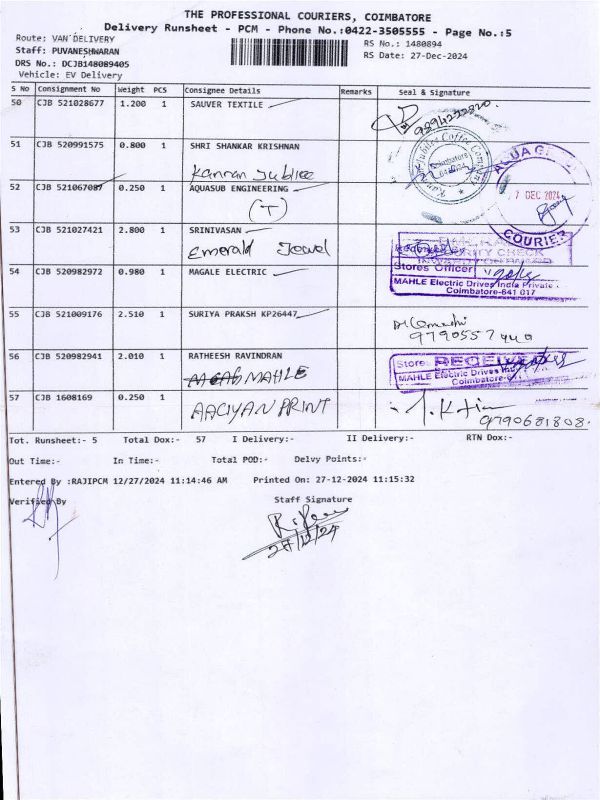 THE PROFESSIONAL COURIERS, COIMBATORE
Delivery Runsheet - PCM - Phone No.:0422-3505555 - Page No.:5
Route: VAN DELIVERY
Staff: PUVANESHWARAN
RS No.: 1480894
DRS No.: DCJB148089405
RS Date: 27-Dec-2024
Vehicle: EV Delivery
S No Consignment No Weight PCS Consignee Details Remarks Seal & Signature
50 CJB 521028677 1.200 1 SAUVER TEXTILE
9894252820.
51 CJB 520991575 0.800 1 SHRI SHANKAR KRISHNAN
Kannan Jubilee
Jubilee Coffee Company
Coimbatore
52 CJB 521067087 0.250 1 AQUASUB ENGINEERING
(T)
7 DEC 2024
COURIER
53 CJB 521027421 2.800 1 SRINIVASAN
Emerald Jewel
SECURITY CHECK
54 CJB 520982972 0.980 1 MAGALE ELECTRIC
Stores Officer
MAHLE Electric Drives India Private
Coimbatore-641 017
55 CJB 521009176 2.510 1 SURIYA PRAKSH KP26447
9790557940
56 CJB 520982941 2.010 1 RATHEESH RAVINDRAN
MAHLE
RECEIVED
Stores
MAHLE Electric Drives India
Coimbatore-641
57 CJB 1608169 0.250 1
AACIYAN PRINT
9790681808.
Tot. Runsheet:- 5 Total Dox:- 57 I Delivery:- II Delivery:- RTN Dox:-
Out Time:- In Time:- Total POD:- Delvy Points:-
Entered By :RAJIPCM 12/27/2024 11:14:46 AM Printed On: 27-12-2024 11:15:32
Verified By Staff Signature
27/12/24